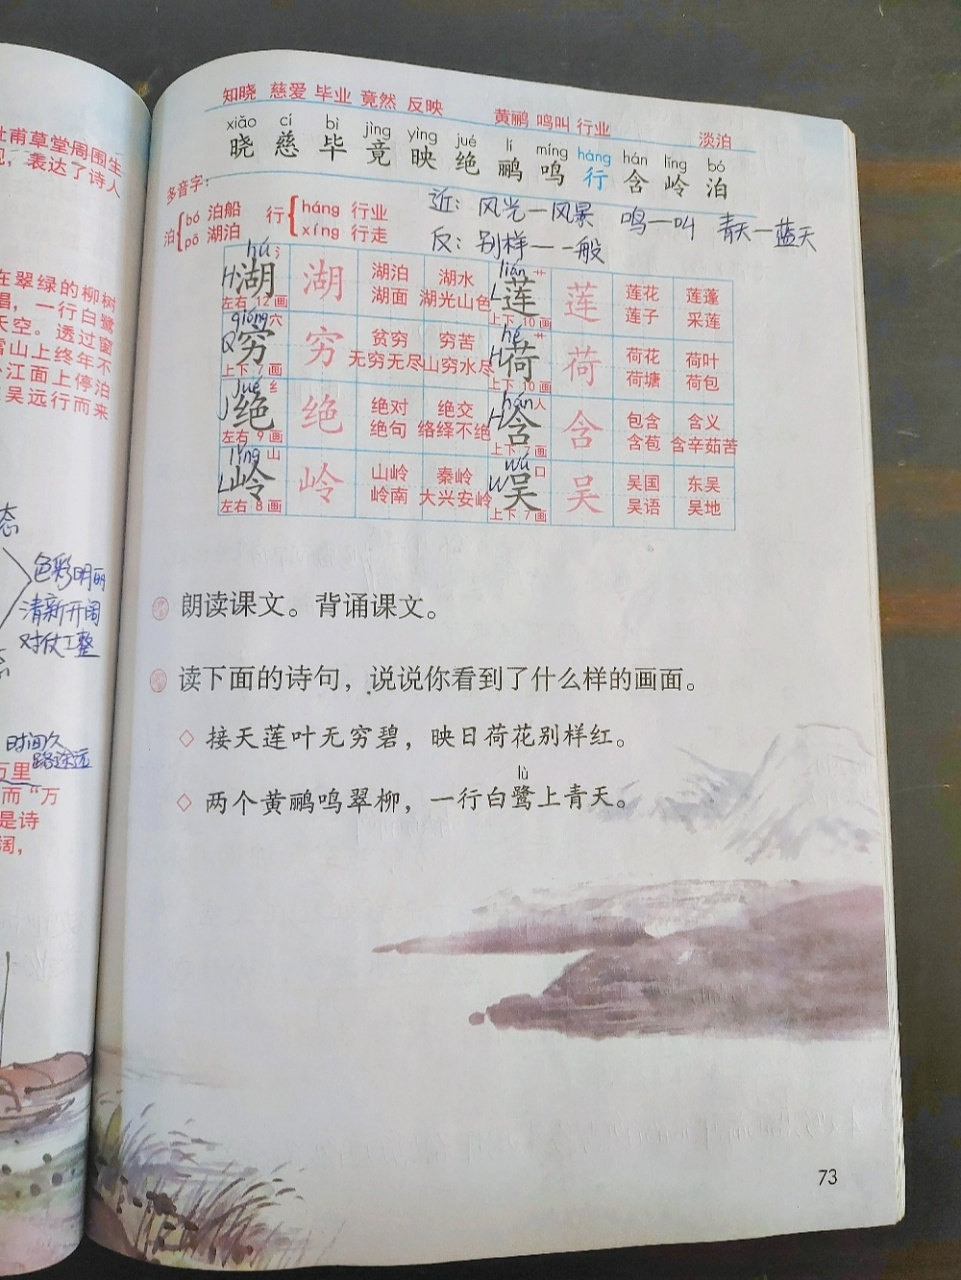 杜甫草堂周围生
表达了诗人
在翠绿的柳树
一行白鹭
天空。透过窗
雪山上终年不
江面上停泊
吴远行而来
态
色彩明丽
清新开阔
对仗工整
时间久
路途远
万里
而“万
是诗
阔，
知晓 慈爱 毕业 竟然 反映 黄鹂 鸣叫 行业 淡泊
xiǎo cí bì jìng yìng jué lí míng háng hán lǐng bó
晓 慈 毕 竟 映 绝 鹂 鸣 行 含 岭 泊
多音字：
泊 bó 泊船 pō 湖泊 行 háng 行业 xíng 行走
近：风光—风景 鸣—叫 青天—蓝天
反：别样—一般
hú 氵 H 湖 左右 12画 湖 湖泊 湖水 湖面 湖光山色
lián 艹 L 莲 上下 10画 莲 莲花 莲蓬 莲子 采莲
qióng 穴 Q 穷 上下 7画 穷 贫穷 穷苦 无穷无尽 山穷水尽
hé 艹 H 荷 上下 10画 荷 荷花 荷叶 荷塘 荷包
jué 纟 J 绝 左右 9画 绝 绝对 绝交 绝句 络绎不绝
hán 人 H 含 上下 7画 含 包含 含义 含苞 含辛茹苦
lǐng 山 L 岭 左右 8画 岭 山岭 秦岭 岭南 大兴安岭
wú 口 W 吴 上下 7画 吴 吴国 东吴 吴语 吴地
朗读课文。背诵课文。
读下面的诗句，说说你看到了什么样的画面。
◇ 接天莲叶无穷碧，映日荷花别样红。
lù
◇ 两个黄鹂鸣翠柳，一行白鹭上青天。
73